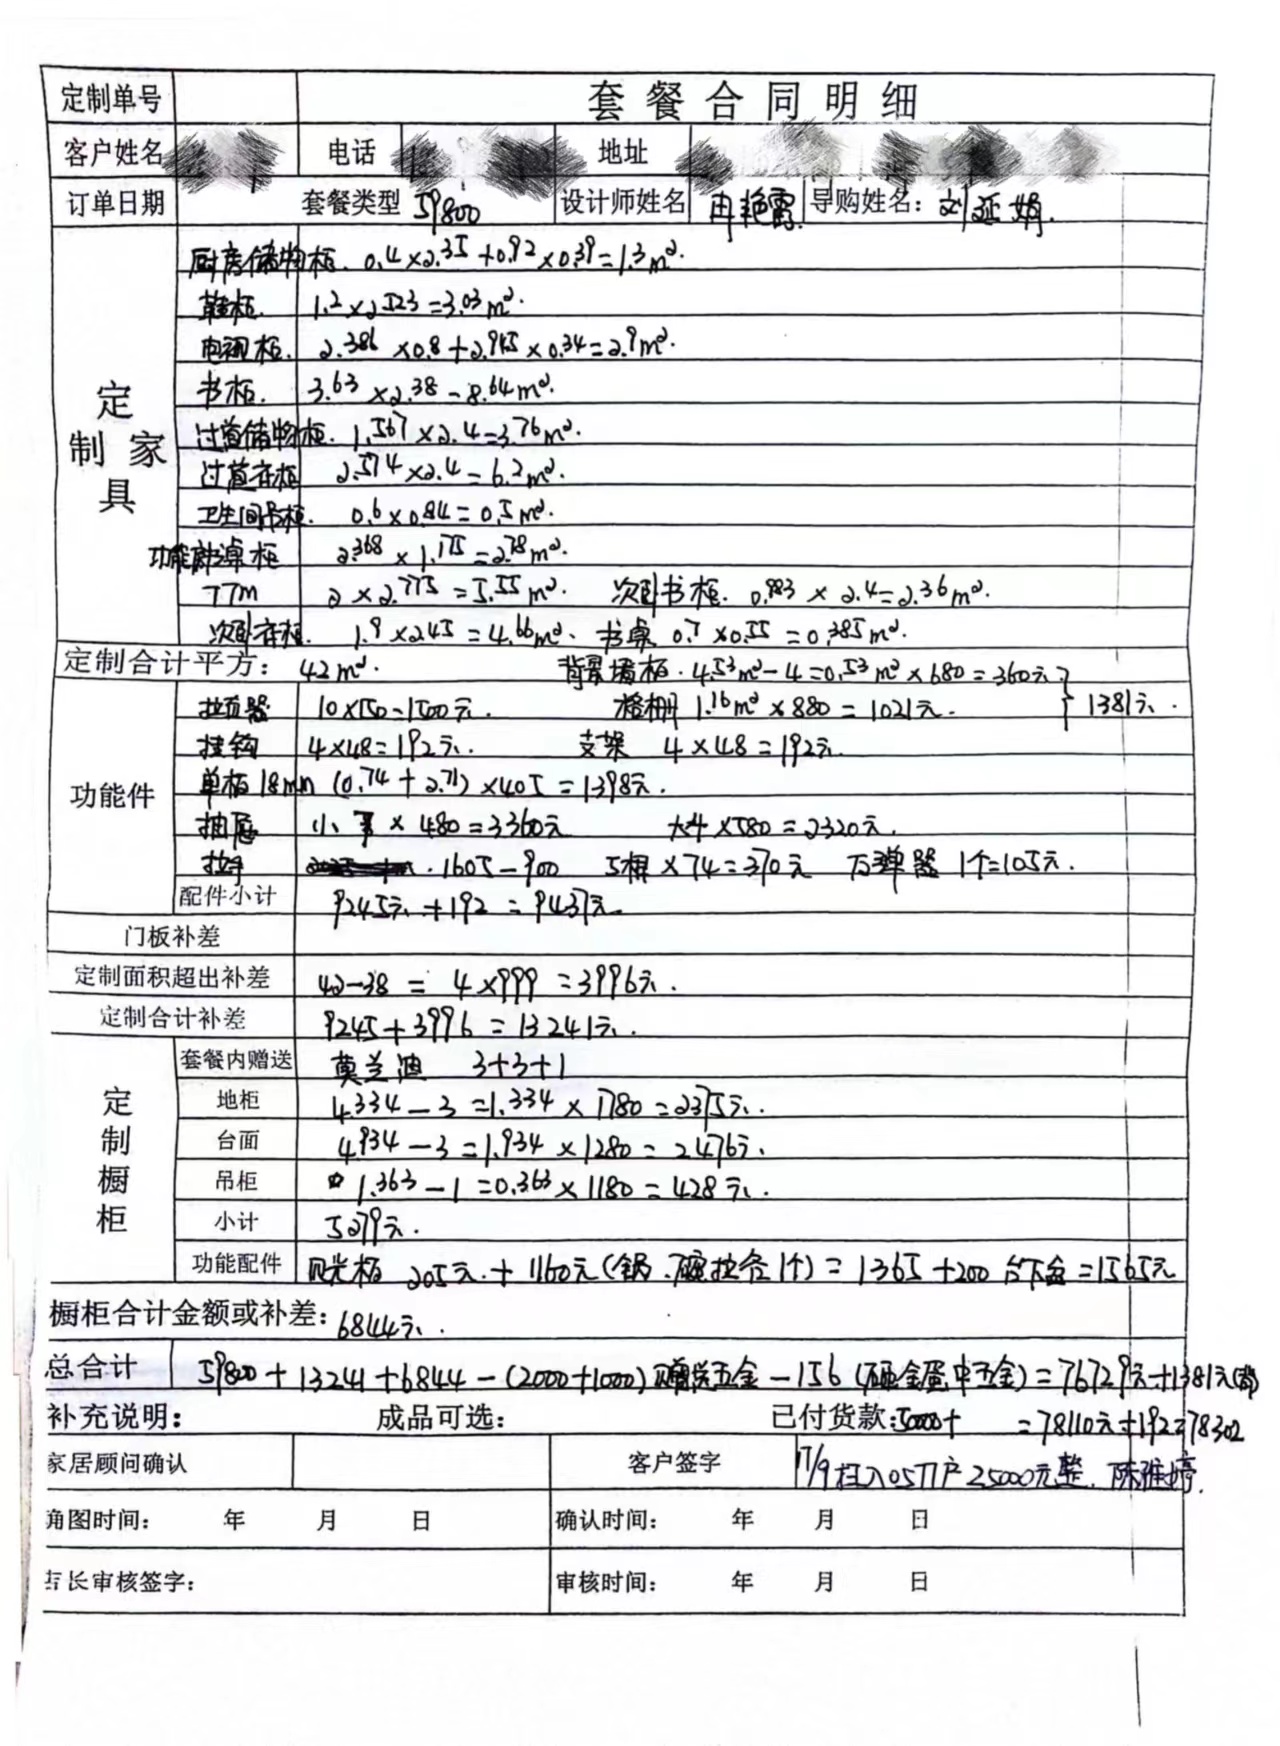 定制单号 套餐合同明细
客户姓名 电话 地址
订单日期 套餐类型 59800 设计师姓名 冉艳霞 导购姓名：刘延娟.
定制家具
厨房储物柜. 0.4×2.35+0.92×0.39=1.3m².
鞋柜. 1.2×2.523=3.03m².
电视柜. 2.386×0.8+2.945×0.34=2.9m².
书柜. 3.63×2.38=8.64m².
过道储物柜. 1.567×2.4=3.76m².
过道衣柜 2.574×2.4=6.2m².
卫生间吊柜. 0.6×0.84=0.5m².
功能 桌柜 2.368×1.175=2.78m².
TTM 2×2.775=5.55m². 次卧书柜. 0.983×2.4=2.36m².
次卧衣柜. 1.9×2.45=4.66m². 书桌 0.7×0.55=0.385m².
定制合计平方： 42m². 背景墙柜. 4.53m²-4=0.53m²×680=360元
功能件
拉直器 10×150=1500元. 格栅 1.16m²×880=1021元. } 1381元.
挂钩 4×48=192元. 支架 4×48=192元.
单板18mm (0.74+2.71)×405=1398元.
抽屉 小7×480=3360元 大4×580=2320元.
拉手 1605-900 5根×74=370元 反弹器 1个=105元.
配件小计 9245元+192=9437元
门板补差
定制面积超出补差 42-38=4×999=3996元.
定制合计补差 9245+3996=13241元.
定制橱柜
套餐内赠送 莫兰迪 3+3+1
地柜 4.334-3=1.334×1780=2375元.
台面 4.934-3=1.934×1280=2476元.
吊柜 1.363-1=0.363×1180=428元.
小计 5279元.
功能配件 见光板 205元.+1160元(锅.碗拉篮1个)=1365+200 台下盆=1565元
橱柜合计金额或补差： 6844元.
总合计 59800+13241+6844-(2000+1000)赠送五金-156(砸金蛋中五金)=76729元+1381元
补充说明： 成品可选： 已付货款:5000+ =78110元+192=78302
家居顾问确认 客户签字 17/9扫入0577户25000元整. 陈雅婷.
角图时间： 年 月 日 确认时间： 年 月 日
店长审核签字： 审核时间： 年 月 日